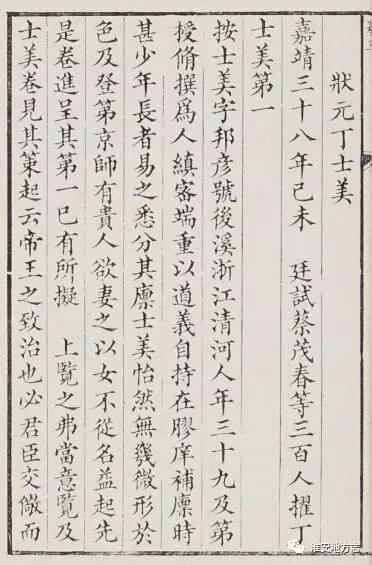 狀元丁士美
嘉靖三十八年己未　廷試蔡茂春等三百人擢丁
士美第一
按士美字邦彥號後溪浙江清河人年三十九及第
授脩撰為人縝密端重以道義自持在膠庠補廩時
甚少年長者易之悉分其廩士美怡然無幾微形於
色及登第京師有貴人欲妻之以女不從名益起先
是卷進呈其第一已有所擬　上覽之弗當意覽及
士美卷見其策起云帝王之致治也必君臣交儆而
淮安地方志